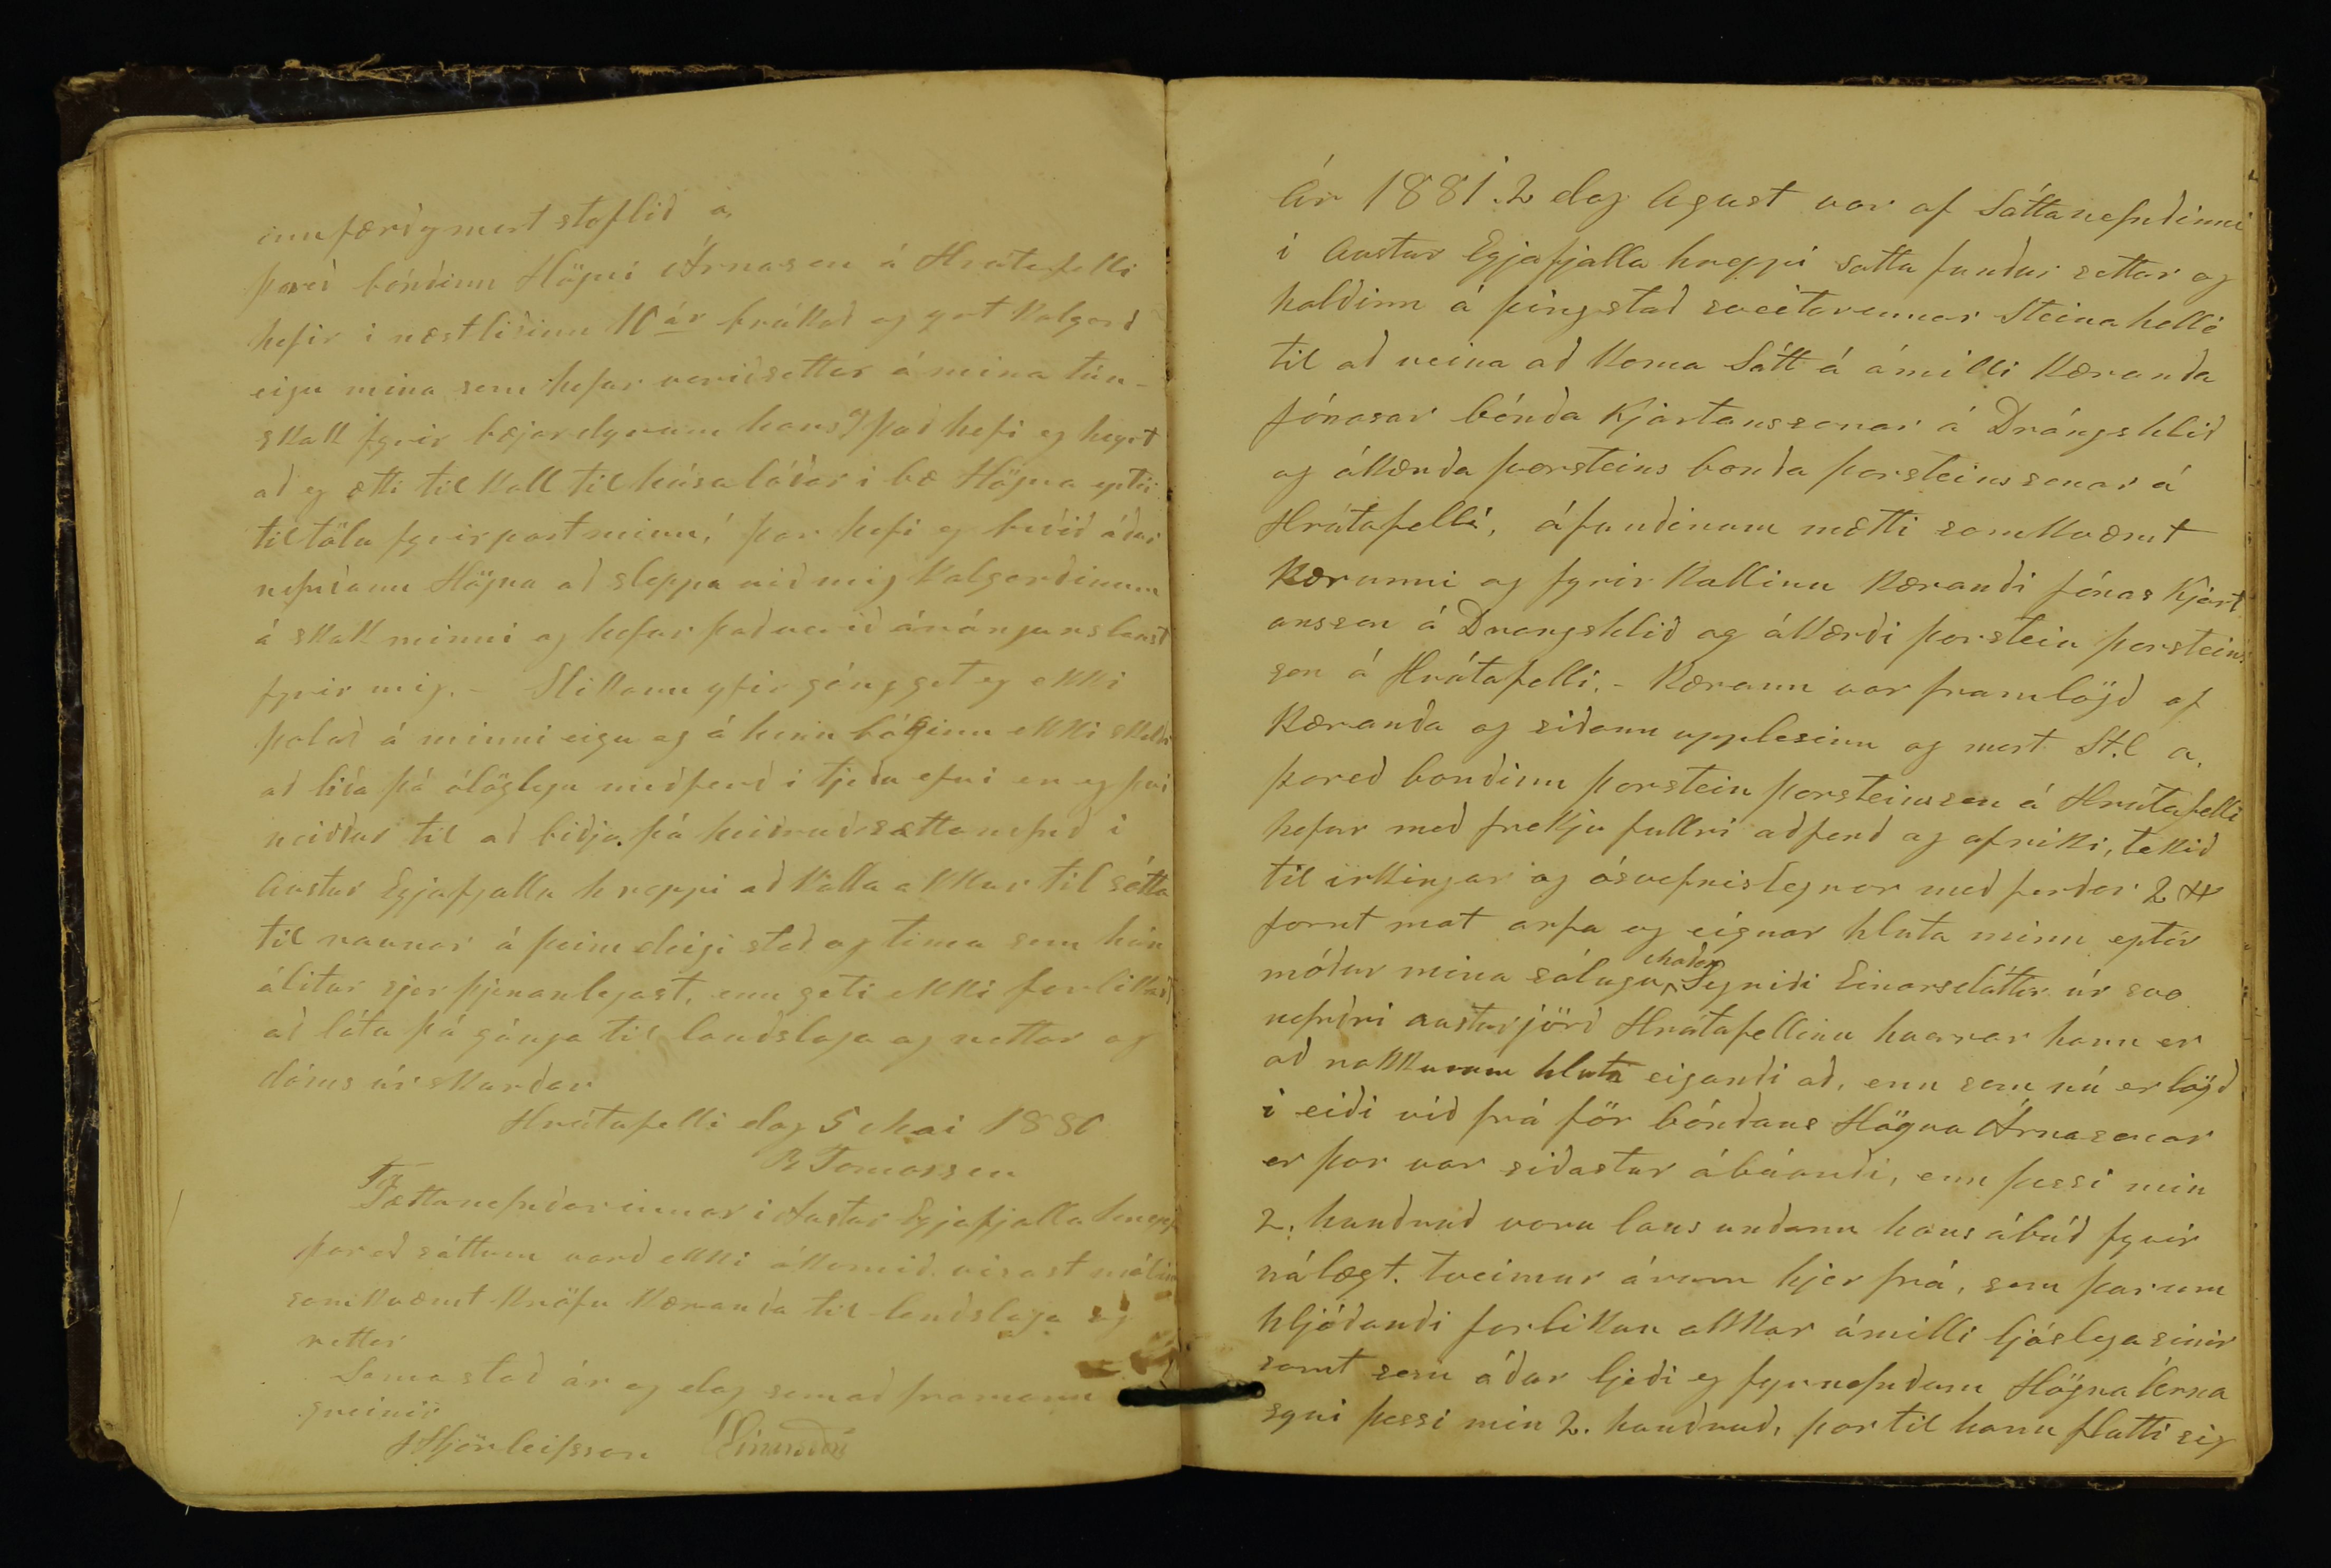 innfærd og mert stoflid a,
þared bóndinn Högni Árnason á Hrútafelli
hefir i næstlidinn 10 ár brúkad og gert Kalgard
eigu mina sem hefur veridsettur á mina tún-
skák fyrir bæjardyrum hans og þad hefi eg heyrt
ad eg ætti tilkall til húsa lódar i bæ Högna eptir
tiltölu fyrirpart minn, þar hefi eg bedid ádur
nefndann Högna ad sleppa vid mig Kalgardinum
á skák minni og hefur þad verid árángurslaust
fyrir mig. – Slikann yfirgáng get eg ekki
þolad á minni eigu og á hinn bóginn ekki skuldi
ad lida þá ólöglegu medferd i tjedu efni er eg þvi
neiddur til ad bidja þá heidrudu sættanefnd i
Austur Eyjafjalla hreppi ad kalla okkur til sátta
til raunar á þeim deigi stad og tima sem hún
álitur sjer þjenanlegast, enn geti ekki forlikast
ad láta þá gánga til landslaga og rettar og
dóms úrskurdar
Hrútafelli dag 5 Mai 1880
B Tomasson
Til
Sættanefndarinnar i Austur Eyjafjalla hrepp
þared sáttum vard ekki ákomid visast málinu
samkvæmt kröfu kæranda til landslaga og
rettar
Sama stad ár og dag semad framann
greinir
Hjörleifsson
Ár 1881. 2 dag Agust var af Sáttanefndinni
i Austur Eyjafjalla hreppi Satta fundur settur og
haldinn á þingstad sveitarennar Steinahelle
til ad reina ad koma Sátt á ámilli Kæranda
Jónasar bónda Kjartanssonar á Drángshlid
og ákærda þorsteins bonda þorsteinssonar á
Hrútafelli, áfundinum mætti samkvæmt
Kærunni og fyrir kallinu Kærandi Jónas Kjart
ansson á Drangshlid og ákærdi þorstein þorsteins
son á Hrútafelli. – Kærann var framlögd af
Kæranda og sidann upplesinn og mert St.l a.
þared bondinn þorstein þorsteinsson á Hrútafelli
hefur med frekju fullri adferd og ofriki, tekid
til irkingar og ósvefnislegrar medferdar 2 H
fornt mat arfa og eignar hluta minn eptir
módur mina sálugu Madm Sigridi Einarsdóttir úr svo
nefndri austurjörd Hrútafellinu hvarrar hann er
ad nokkurum hluta eigandi ad, enn sem nú er lögd
i eidi vid frá för bóndans Högna Árnasonar
er þar var sidastur ábúandi, enn þessi min
2. hundrud voru laus undann hans ábúd fyrir
nálægt. tveimur árum hjer frá, sem þarum
hljódandi forlikun okkar ámilli ljóslega sinir
samt sem ádur ljedi eg fyrnefndum Högna Árna
syni þessi min 2. hundrud, þar til hann flutti sig